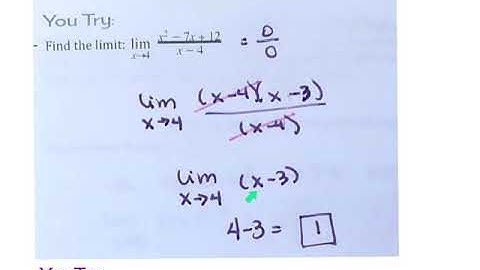 You Try:
- Find the limit: lim x→4 x² − 7x + 12 / x − 4 = 0/0
lim x→4 (x−4)(x−3) / (x−4)
lim x→4 (x−3)
4−3 = 1
You Try: